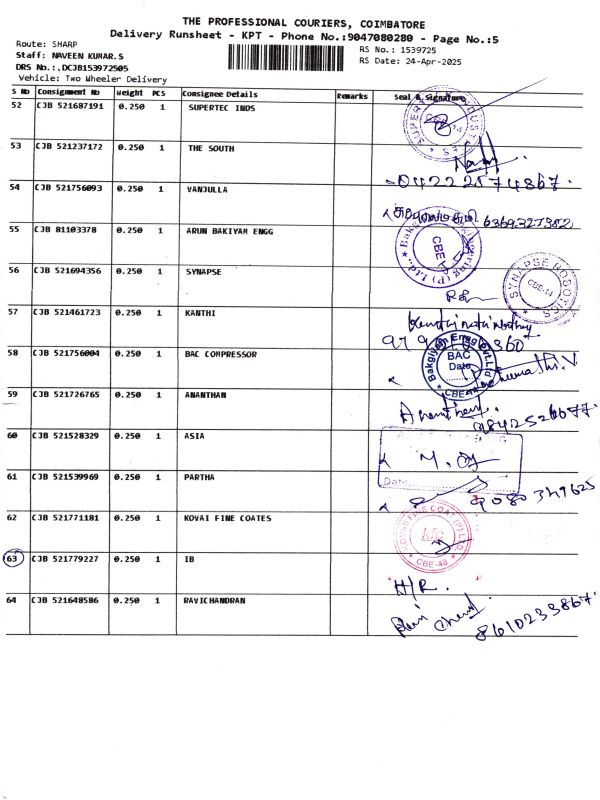 THE PROFESSIONAL COURIERS, COIMBATORE
Delivery Runsheet - KPT - Phone No.:9047080280 - Page No.:5
Route: SHARP
Staff: NAVEEN KUMAR.S
DRS No.:.DCJB153972505
Vehicle: Two Wheeler Delivery
RS No.: 1539725
RS Date: 24-Apr-2025
S No Consignment No Weight PCS Consignee Details Remarks Seal & Signature
52 CJB 521687191 0.250 1 SUPERTEC INDS
53 CJB 521237172 0.250 1 THE SOUTH
04222574867
54 CJB 521756093 0.250 1 VANJULLA
6369327382
55 CJB 81103378 0.250 1 ARUN BAKIYAM ENGG
CBE
56 CJB 521694356 0.250 1 SYNAPSE
SYNAPSE ROBOTICS
CBE-14
57 CJB 521461723 0.250 1 KANTHI
58 CJB 521756004 0.250 1 BAC COMPRESSOR
Bakgiyam Engg Pvt.Ltd
BAC
Date
CBE
59 CJB 521726765 0.250 1 ANANTHAN
60 CJB 521528329 0.250 1 ASIA
Date
61 CJB 521539969 0.250 1 PARTHA
9080349625
62 CJB 521771181 0.250 1 KOVAI FINE COATES
KOVAI FINE COAT (P) LTD
CBE-48
63 CJB 521779227 0.250 1 IB
H/R.
64 CJB 521648586 0.250 1 RAVICHANDRAN
8610233867.